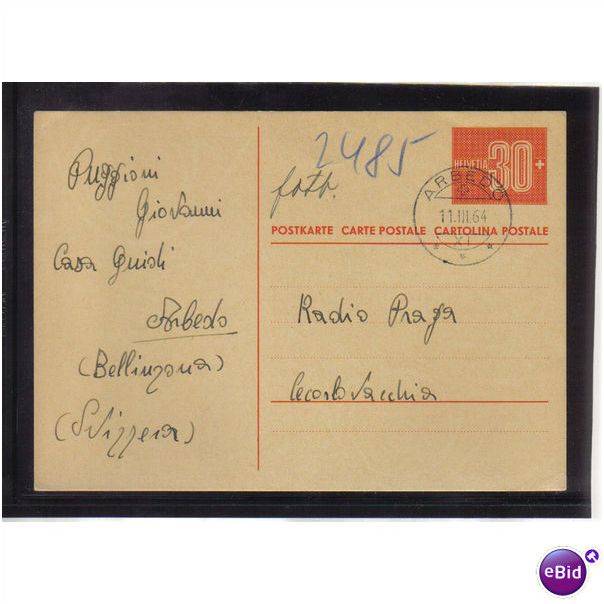 Puggioni
Giovanni
Casa Guidi
Arbedo
(Bellinzona)
(Svizzera)
2485
foto.
HELVETIA 30+
ARBEDO
11.III.64
XI
POSTKARTE CARTE POSTALE CARTOLINA POSTALE
Radio Praga
Cecoslovacchia
eBid